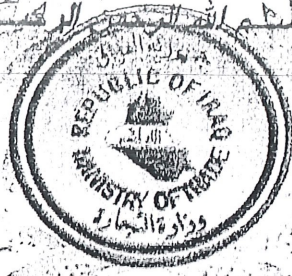 بسم الله الرحمن الرحيم
REPUBLIC OF IRAQ
MINISTRY OF TRADE
وزارة التجارة